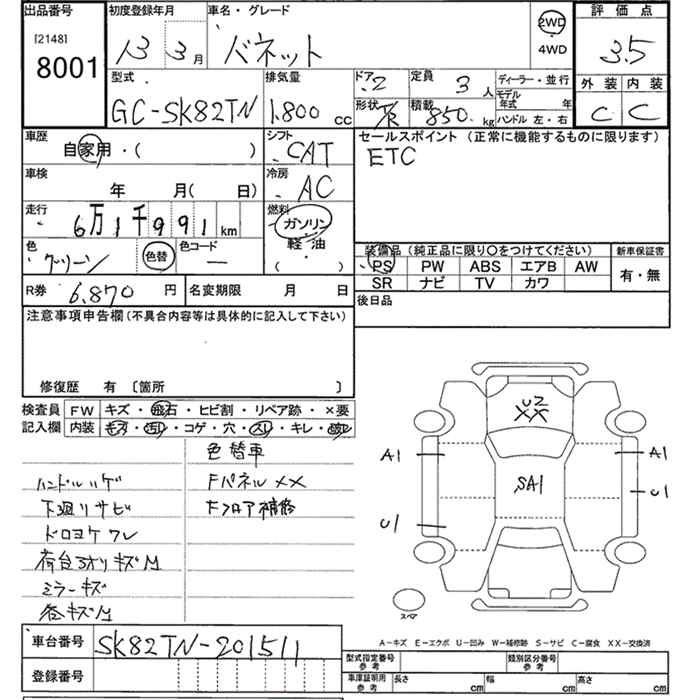 出品番号 初度登録年月 車名・グレード 評価点
[2148] 8001 13 3月 バネット 2WD 4WD 3.5
型式 排気量 ドア 定員 ディーラー・並行 外装 内装
GC-SK82TN 1.800 cc 2 3人 モデル年式 年 C C
形状 積載 850 kg ハンドル 左・右
車歴 シフト セールスポイント (正常に機能するものに限ります)
自家用・( ) CAT ETC
車検 冷房
年 月( 日) AC
走行 燃料
6万1千991km ガソリン
色 色替 色コード 軽・油 装備品 (純正品に限り〇をつけてください) 新車保証書
グリーン ー ( ) PS PW ABS エアB AW 有・無
SR ナビ TV カワ
R券 6.870 円 名変期限 月 日 後日品
注意事項申告欄(不具合内容等は具体的に記入して下さい)
修復歴 有 〔箇所 〕
検査員 FW キズ・飛石・ヒビ割・リペア跡・×要
記入欄 内装 キズ・汚れ・コゲ・穴・スレ・キレ・
色替車
ハンドルハゲ Fパネル××
下廻リサビ Fフロア補修
ドロヨケワレ
荷台ヨオリキズM
ミラーキズ
巻キズM
U2
××
A1 A1
SA1
U1 U1
スペア
A－キズ E－エクボ U－凹み W－補修跡 S－サビ C－腐食 XX－交換済
車台番号 SK82TN-201511 型式指定番号 参考 類別区分番号 参考
登録番号 車庫証明用 参考 長さ cm 幅 cm 高さ cm